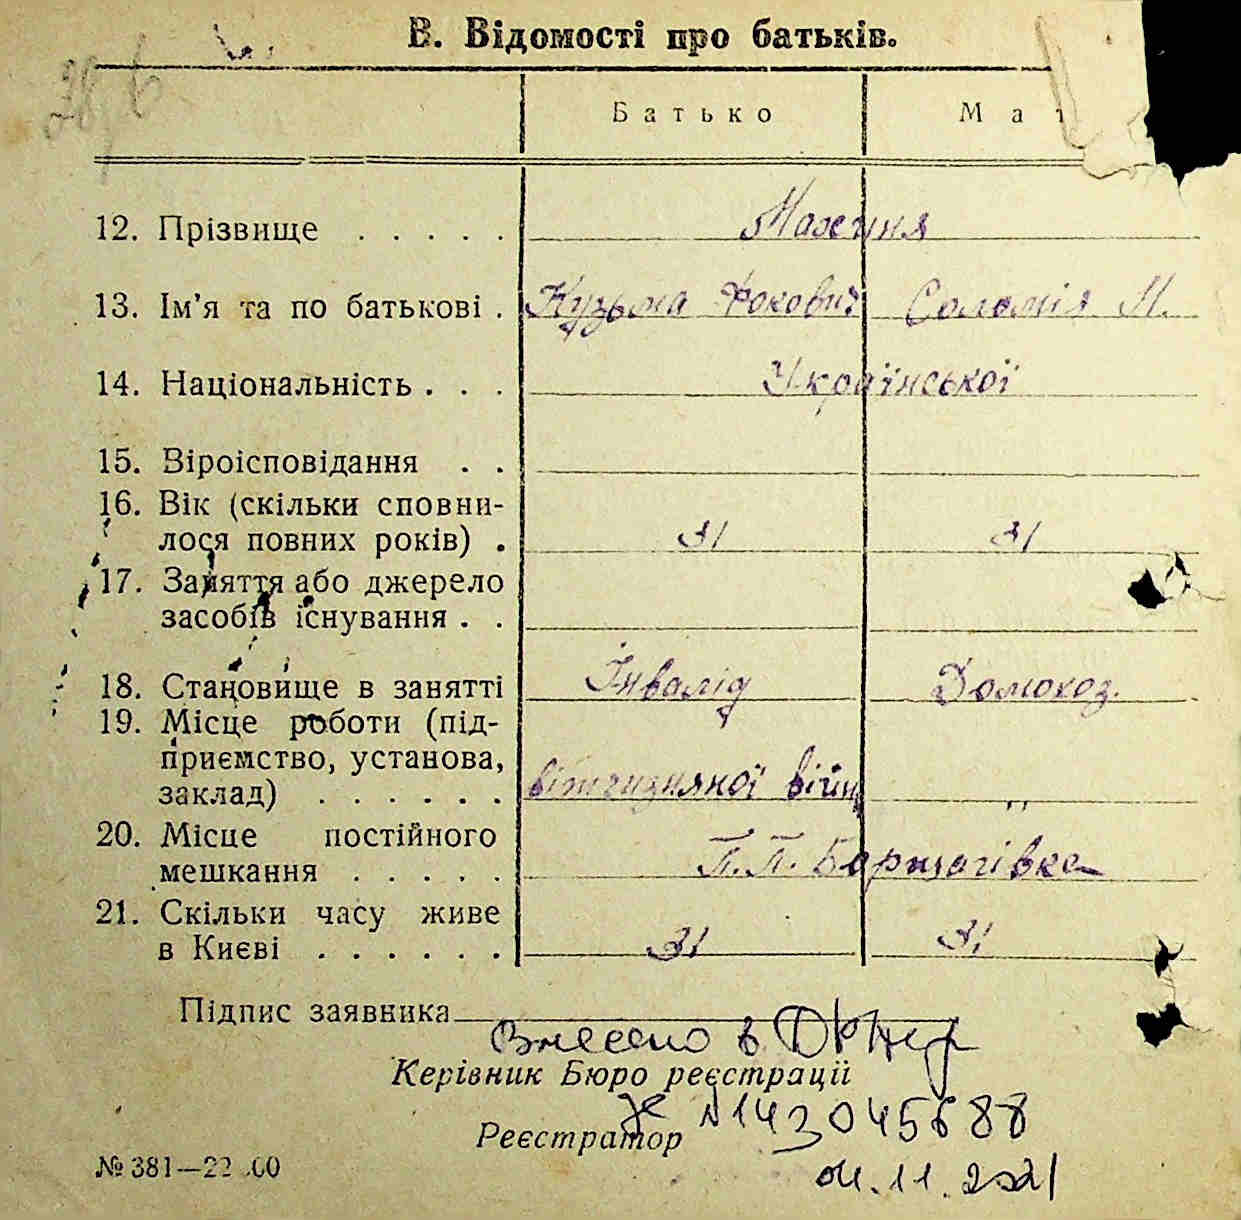 В. Відомості про батьків.
Батько Мат
12. Прізвище . . . . . Махиня
13. Ім'я та по батькові . Кузьма Фокович Соломія М.
14. Національність . . . Української
15. Віроісповідання . .
16. Вік (скільки сповни-
лося повних років) . 31 31
17. Заняття або джерело
засобів існування . .
18. Становище в занятті Інвалід Домохоз.
19. Місце роботи (під-
приємство, установа,
заклад) . . . . . . вітчизняної війни "
20. Місце постійного
мешкання . . . . . П.П. Борщагівка
21. Скільки часу живе
в Києві . . . . . . 31 31
Підпис заявника
Внесено в ДРАЦС
Керівник Бюро реєстрації
Реєстратор № 143045688
№ 381—22 .00
04.11.2021